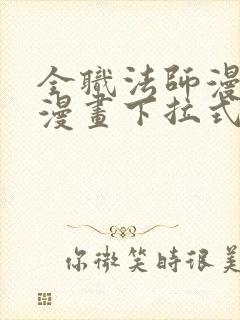 全職法師漫
漫畫下拉式
你微笑時很美